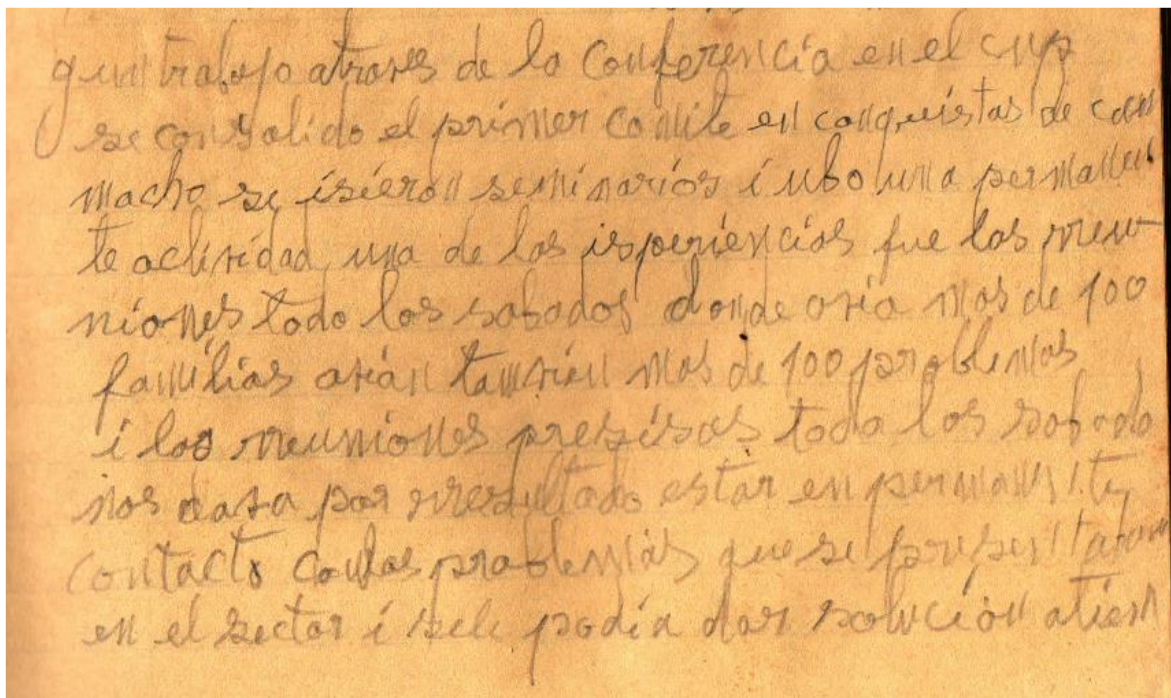 guntrabajo atraves de la Conferencia en el cnp
se consolido el primer comite en conquistas de cam
macho se isieron seminarios i ubo una permanen
te actividad una de las isperiencias fue las rreu
niones todo los sabados donde avia mas de 100
familias avian tamvien mas de 100 problemas
i las rreuniones presisas todo los sabado
nos dava por rresultado estar en permanente
contacto con los problemas que se presentavan
en el sector i sele podia dar solución atiem